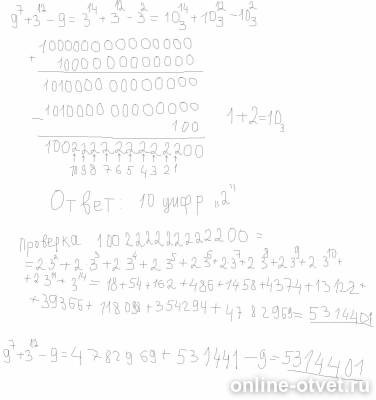 9⁷+3¹²-9 = 3¹⁴+3¹²-3² = 10₃¹⁴+10₃¹²-10₃²
100000000000000
+ 1000000000000
101000000000000
- 101000000000000
100
1+2=10₃
100222222222200
10 9 8 7 6 5 4 3 2 1
Ответ: 10 цифр "2"
Проверка 100222222222200 =
=2·3²+2·3³+2·3⁴+2·3⁵+2·3⁶+2·3⁷+2·3⁸+2·3⁹+2·3¹⁰+
+2·3¹¹+3¹⁴= 18+54+162+486+1458+4374+13122+
+39366+118098+354294+4782969=5314401
9⁷+3¹²-9=4782969+531441-9=5314401
online-otvet.ru